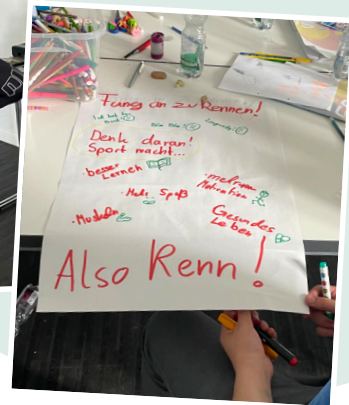 Fang an zu Rennen!
Denk daran!
Sport macht...
· besser
Lernen
· mehr
Motivation
· Mehr Spaß
· Muskeln
Gesundes
Leben
Also Renn!